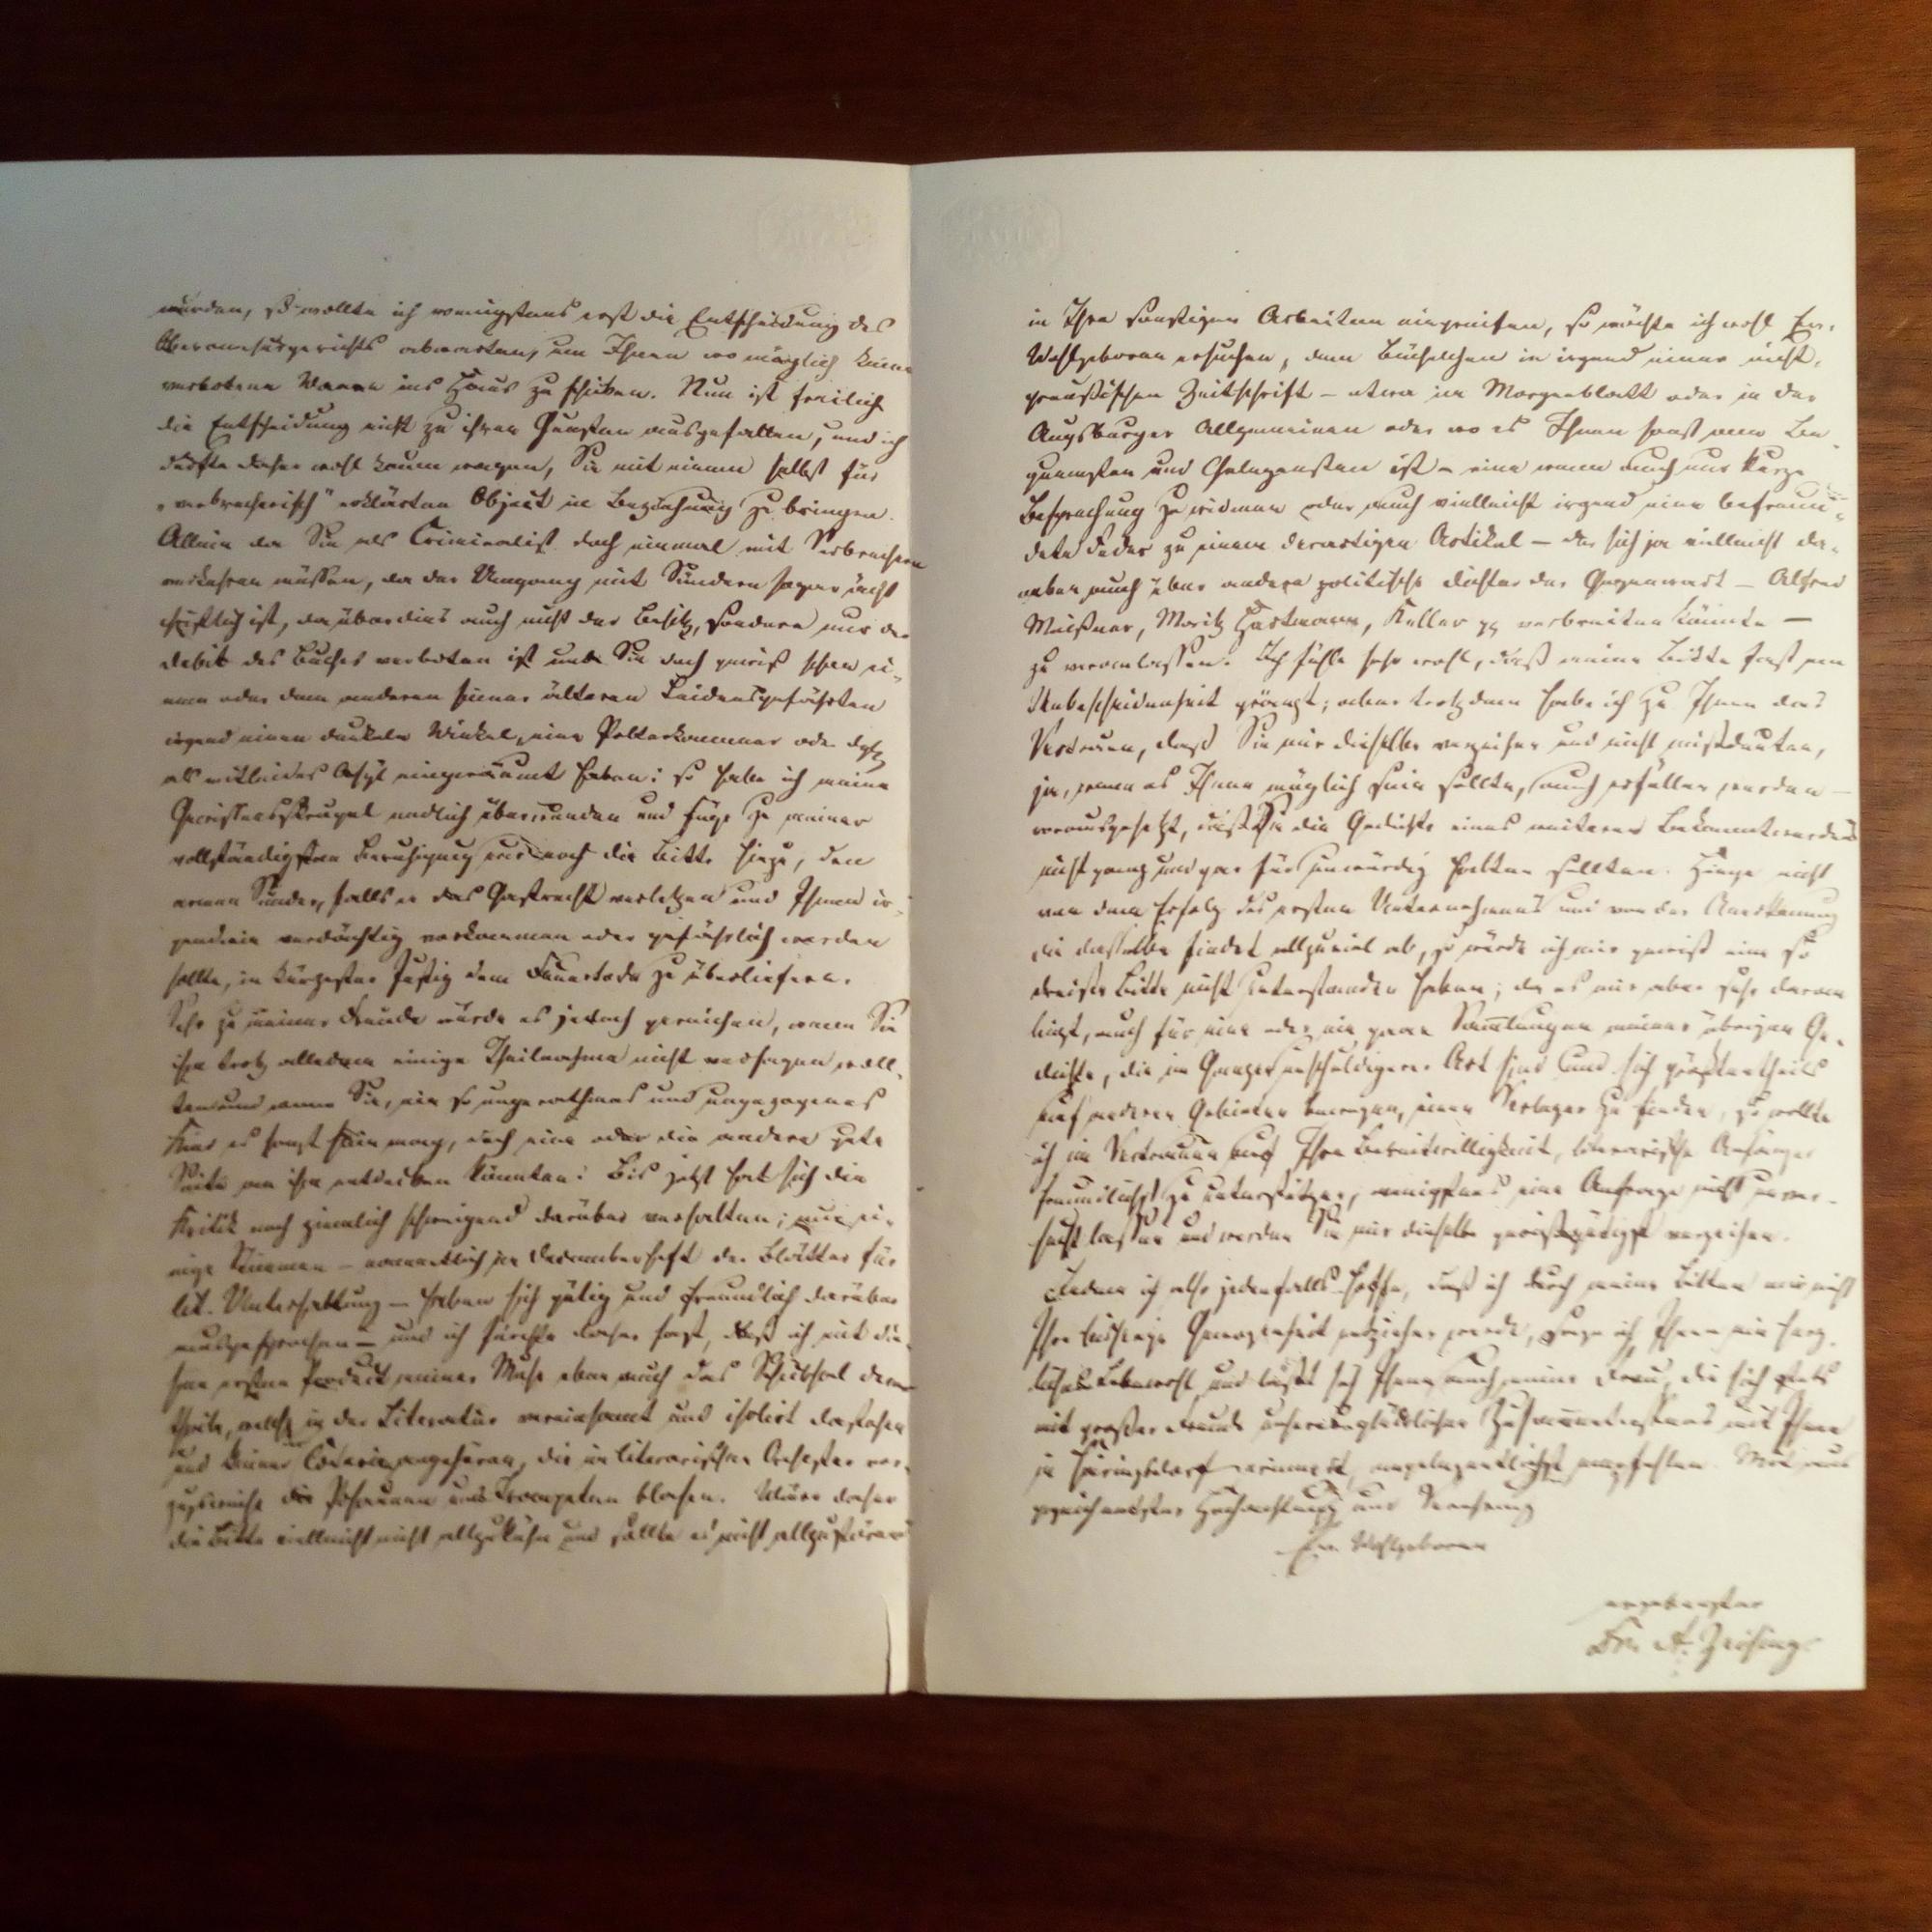 würden, so wollte ich wenigstens erst die Entscheidung des
Obercensurgerichts abwarten, um Ihnen wo möglich keine
verbotene Waare ins Haus zu schicken. Nun ist freilich
die Entscheidung nicht zu ihren Gunsten ausgefallen, und ich
dürfte daher wohl kaum wagen, Sie mit einem selbst für
„verbrecherisch" erklärten Object in Beziehung zu bringen.
Allein da Sie als Criminalist doch einmal mit Verbrechern
verkehren müssen, da der Umgang mit Sündern sogar ächt
christlich ist, da überdies auch nicht der Besitz, sondern nur der
Debit des Buches verboten ist und Sie doch gewiß schon ei-
nem oder dem anderen seiner älteren Leidensgefährten
irgend einen dunkeln Winkel, eine Polterkammer oder dglch
als mitleides Asyl eingeräumt haben: so habe ich meine
Gewissensskrupel endlich überwunden und füge zu meiner
vollständigsten Beruhigung nur noch die Bitte hinzu, den
armen Sünder, falls er das Gastrecht verletzen und Ihnen ir-
gendwie verdächtig vorkommen oder gefährlich werden
sollte, in kürzester Justiz dem Feuertode zu überliefern.
Sehr zu meiner Freude würde es jedoch gereichen, wenn Sie
ihm trotz alledem einige Theilnahme nicht versagen woll-
ten und wenn Sie, ein so ungerathenes und ungezogenes
Kind es sonst sein mag, doch eine oder die andere gute
Seite an ihm entdecken könnten. Bis jetzt hat sich die
Kritik noch ziemlich schweigend darüber verhalten; nur ei-
nige Stimmen – namentlich im Decemberheft der Blätter für
lit. Unterhaltung – haben sich gütig und freundlich darüber
ausgesprochen – und ich fürchte daher fast, daß ich mit die-
sem ersten Product meiner Muse eben auch das Schicksal derer
theile, welche in der Literatur vereinsamt und isolirt dastehen
und keiner Coterie angehören, die im literarischen Orchester
die Posaunen und Trompeten blasen. Wäre daher
die Bitte vielleicht nicht allzukühn und sollte es nicht allzustörend
in Ihre sonstigen Arbeiten eingreifen, so möchte ich wohl Ew.
Wohlgeboren ersuchen, dem Büchelchen in irgend einer nicht-
preußischen Zeitschrift – etwa im Morgenblatt oder in der
Augsburger Allgemeinen oder wo es Ihnen sonst am Be-
quemsten und Gelegensten ist – eine wenn auch nur kurze
Besprechung zu widmen oder auch vielleicht irgend eine befreun-
dete Feder zu einem derartigen Artikel – der sich ja vielleicht da-
neben auch über andere politische Dichter der Gegenwart – Alfred
Meißner, Moritz Hartmann, Keller pp verbreiten könnte –
zu veranlassen. Ich fühle sehr wohl, daß meine Bitte fast an
Unbescheidenheit gränzt; aber trotzdem habe ich zu Ihnen das
Vertrauen, daß Sie mir dieselbe verzeihen und nicht mißdeuten,
ja, wenn es Ihnen möglich sein sollte, auch erfüllen werden –
vorausgesetzt, daß Sie die Gedichte eines weiteren Bekanntwerdens
nicht ganz und gar für unwürdig halten sollten. Hinge nicht
von dem Erfolg des ersten Unternehmens und von der Anerkennung
die dasselbe findet allzuviel ab, so würde ich mir gewiß eine so
dreiste Bitte nicht unterstanden haben; da es mir aber sehr daran
liegt, auch für eine oder ein paar Sammlungen meiner übrigen Ge-
dichte, die im Ganzen unschuldigerer Art sind und sich größtentheils
auf anderen Gebieten bewegen, einen Verleger zu finden, so wollte
ich im Vertrauen auf Ihre Bereitwilligkeit, literarische Anfänger
freundlichst zu unterstützen, wenigstens eine Anfrage nicht unver-
sucht lassen und werden Sie mir dieselbe gewiß gütigst verzeihen.
Indem ich also jedenfalls hoffe, daß ich durch meine Bitten mir nicht
Ihre bisherige Gewogenheit entziehen werde, sage ich Ihnen ein herz-
liches Lebewohl und läßt sich Ihnen auch meine Frau, die sich stets
mit großer Freude unseres glücklichen Zusammentreffens mit Ihnen
in Heringsdorf erinnert, angelegentlichst empfehlen. Mit aus-
gezeichnetster Hochachtung und Verehrung
Ew. Wohlgeboren
ergebenster
Dr. A. Zeising